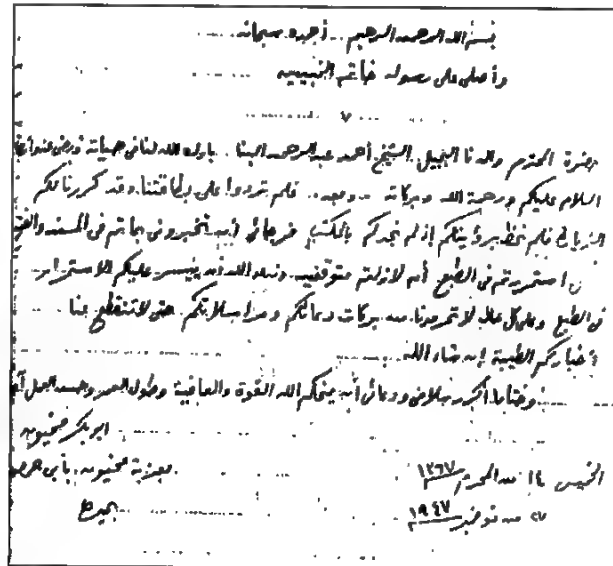 بسم الله الرحمن الرحيم .. أحمده سبحانه
وأصلى على رسوله خاتم النبيين
حضرة المحترم والدنا الجليل الشيخ أحمد عبد الرحمن البنا . بارك الله لنا فى حياته ورضى عنه
السلام عليكم ورحمة الله وبركاته .. وبعد .. فلم تردوا على بطاقتنا وقد كررنا لكم
الزيارة فلم نحظ برؤيتكم إذ لم نجدكم بالمكتب فرجائى أن تخبرونى بما تم فى المسند والفتح
استمررتم فى الطبع أم لازلتم متوقفين ونسأل الله أن ييسر عليكم الاستمرار
فى الطبع وعلى كل حال لا تحرمونا من بركات دعائكم ومراسلاتكم حتى لا تنقطع عنا
أخباركم الطيبة إن شاء الله
وختاما أكرر سلامى ودعائى أن يمنحكم الله القوة والعافية وطول العمر وحسن العمل
أبو بكر مخيون
الخميس ١٤ من المحرم ١٣٦٧ بعزبة مخيون . بأبى حمص
٢٧ من نوفمبر ١٩٤٧ بحيرة